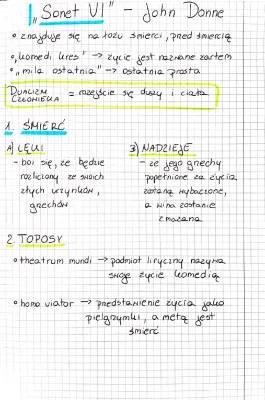 "Sonet VI" – John Donne
• znajduje się na łożu śmierci, przed śmiercią
• "komedii kres" → życie jest nazwane żartem
• "mila ostatnia" → ostatnia prosta
DUALIZM CZŁOWIEKA = rozejście się duszy i ciała
1. ŚMIERĆ
A) LĘKI
- boi się, że będzie
rozliczony ze swoich
złych uczynków,
grzechów
B) NADZIEJE
- że jego grzechy
popełnione za życia
zostaną wybaczone,
a wina zostanie
zmazana
2. TOPOSY
• theatrum mundi → podmiot liryczny nazywa
swoje życie komedią
• homo viator → przedstawienie życia jako
pielgrzymki, a metą jest
śmierć